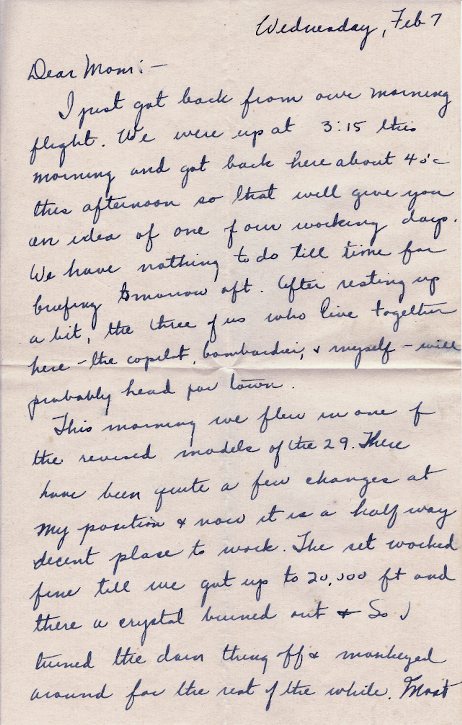 Wednesday, Feb 7
Dear Mom:-
I just got back from our morning
flight. We were up at 3:15 this
morning and got back here about 4 o'c
this afternoon so that will give you
an idea of one of our working days.
We have nothing to do till time for
briefing tomorrow aft. After resting up
a bit, the three of us who live together
here - the copilot, bombardier, & myself - will
probably head for town.
This morning we flew in one of
the revised models of the 29. There
have been quite a few changes at
my position & now it is a half way
decent place to work. The set worked
fine till we got up to 20,000 ft and
there a crystal burned out & So I
turned the darn thing off & monkeyed
around for the rest of the while. Most